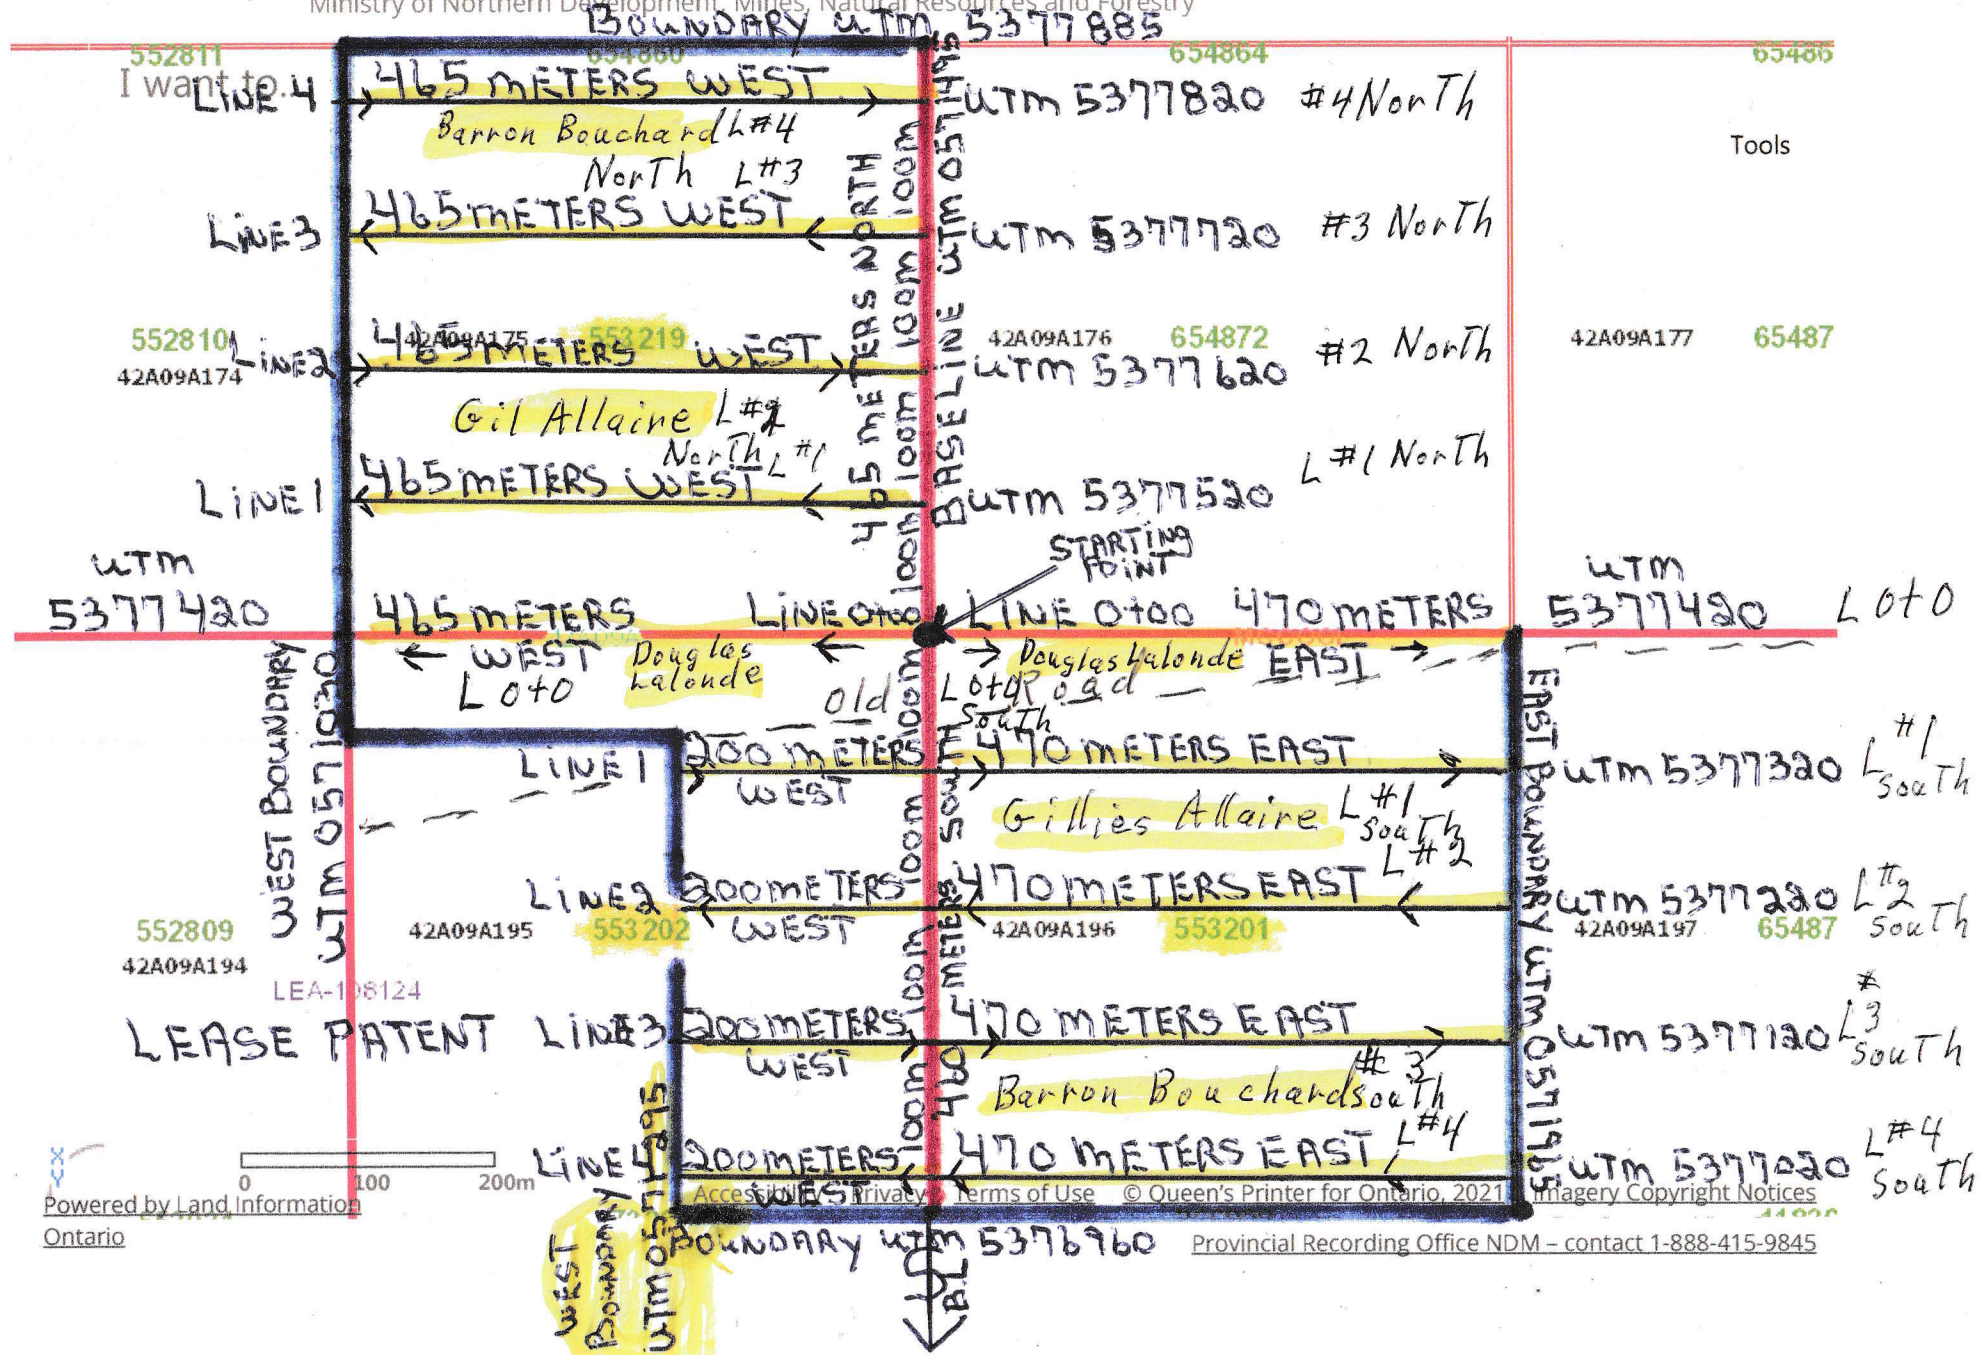 Ministry of Northern Development, Mines, Natural Resources and Forestry
BOUNDARY UTM 5377885
552811
654860
654864
65486
I want to...
LINE 4
465 METERS WEST
UTM 5377820 #4 North
Barron Bouchard L#4
Tools
North L#3
LINE 3
465 METERS WEST
UTM 5377720 #3 North
552810
42A09A175
553219
42A09A176
654872
42A09A177
65487
42A09A174
LINE 2
465 METERS WEST
UTM 5377620 #2 North
Gil Allaire L#2
North L#1
L#1 North
LINE 1
465 METERS WEST
UTM 5377520
465 METERS NORTH
100m 100m 100m 100m
BASELINE UTM 0571495
STARTING
POINT
UTM
5377420
465 METERS
WEST
LINE 0+00
LINE 0+00 470 METERS
EAST
UTM
5377420
L 0+0
Douglas
Lalonde
L 0+0
Douglas Lalonde
Old Road
L 0+0
South
WEST BOUNDARY
UTM 0571030
LINE 1
200 METERS
WEST
470 METERS EAST
UTM 5377320
L #1
South
Gillies Allaire L#1
South
L#2
LINE 2
200 METERS
WEST
470 METERS EAST
UTM 5377220
L #2
South
552809
42A09A195
553202
42A09A196
553201
42A09A197
65487
42A09A194
LEA-108124
LEASE PATENT
LINE 3
200 METERS
WEST
470 METERS EAST
UTM 5377120
L #3
South
Barron Bouchard #3
South
L#4
LINE 4
200 METERS
WEST
470 METERS EAST
UTM 5377020
L #4
South
100m 100m 100m 100m
460 METERS SOUTH
EAST BOUNDARY UTM 0571965
X
Y
0 100 200m
Powered by Land Information
Ontario
Accessibility Privacy Terms of Use © Queen's Printer for Ontario, 2021 Imagery Copyright Notices
BOUNDARY UTM 5376960
Provincial Recording Office NDM – contact 1-888-415-9845
WEST
BOUNDARY
UTM 0571295
BL